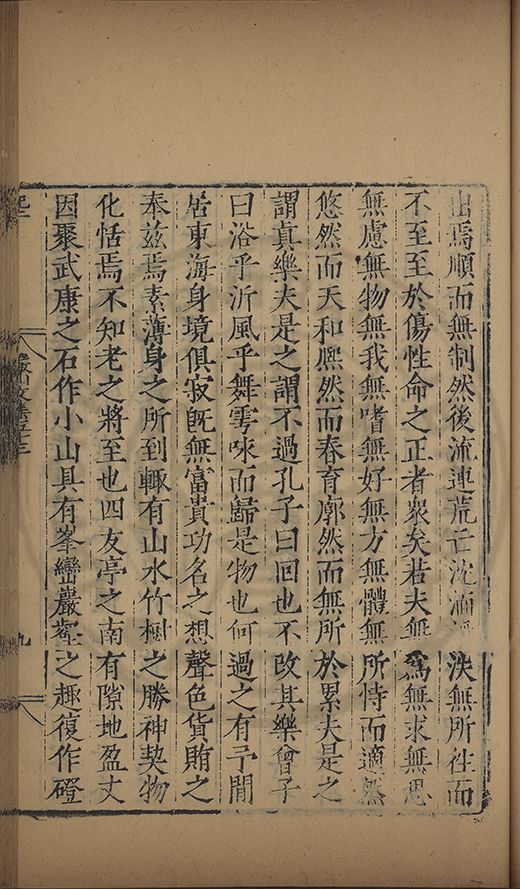 出焉順而無制然後流連荒亡沈湎 泆無所往而
不至至於傷性命之正者衆矣若夫無爲無求無思
無慮無物無我無嗜無好無方無體無所恃而適然
悠然而天和熈然而春育廓然而無所於累夫是之
謂真樂夫是之謂不過孔子曰回也不改其樂曾子
曰浴乎沂風乎舞雩咏而歸是物也何過之有予閒
居東海身境俱寂旣無富貴功名之想聲色貨賄之
奉兹焉素薄身之所到輙有山水竹樹之勝神契物
化恬焉不知老之將至也四友亭之南有隙地盈丈
因聚武康之石作小山具有峯巒巖壑之趣復作磴
文集
九